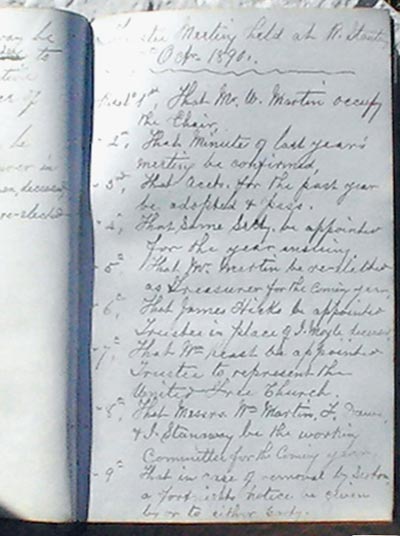 way be
to
of
be
in
re-elected
Trustee Meeting held at N.
Octr. 1890.
Resd. 1st, That Mr. W. Martin occupy
the Chair,
- 2nd, That Minutes of last year's
meeting be confirmed,
- 3rd, That Accts. for the past year
be adopted & pass.
- 4th, That Same Secty. be appointed
for the year ensuing.
- 5th That Mr. Martin be re-elected
as Treasurer for the Coming year,
- 6th, That James Hicks be appointed
Trustee in place of J. Moyle
- 7th, That Wm. be appointed
Trustee to represent the
United Free Church.
- 8th, That Messrs. Wm. Martin,
& J. Stanaway be the working
Committee for the Coming year.
- 9th That in case of removal by Sexton
a Fortnights notice be given
by or to either Party.